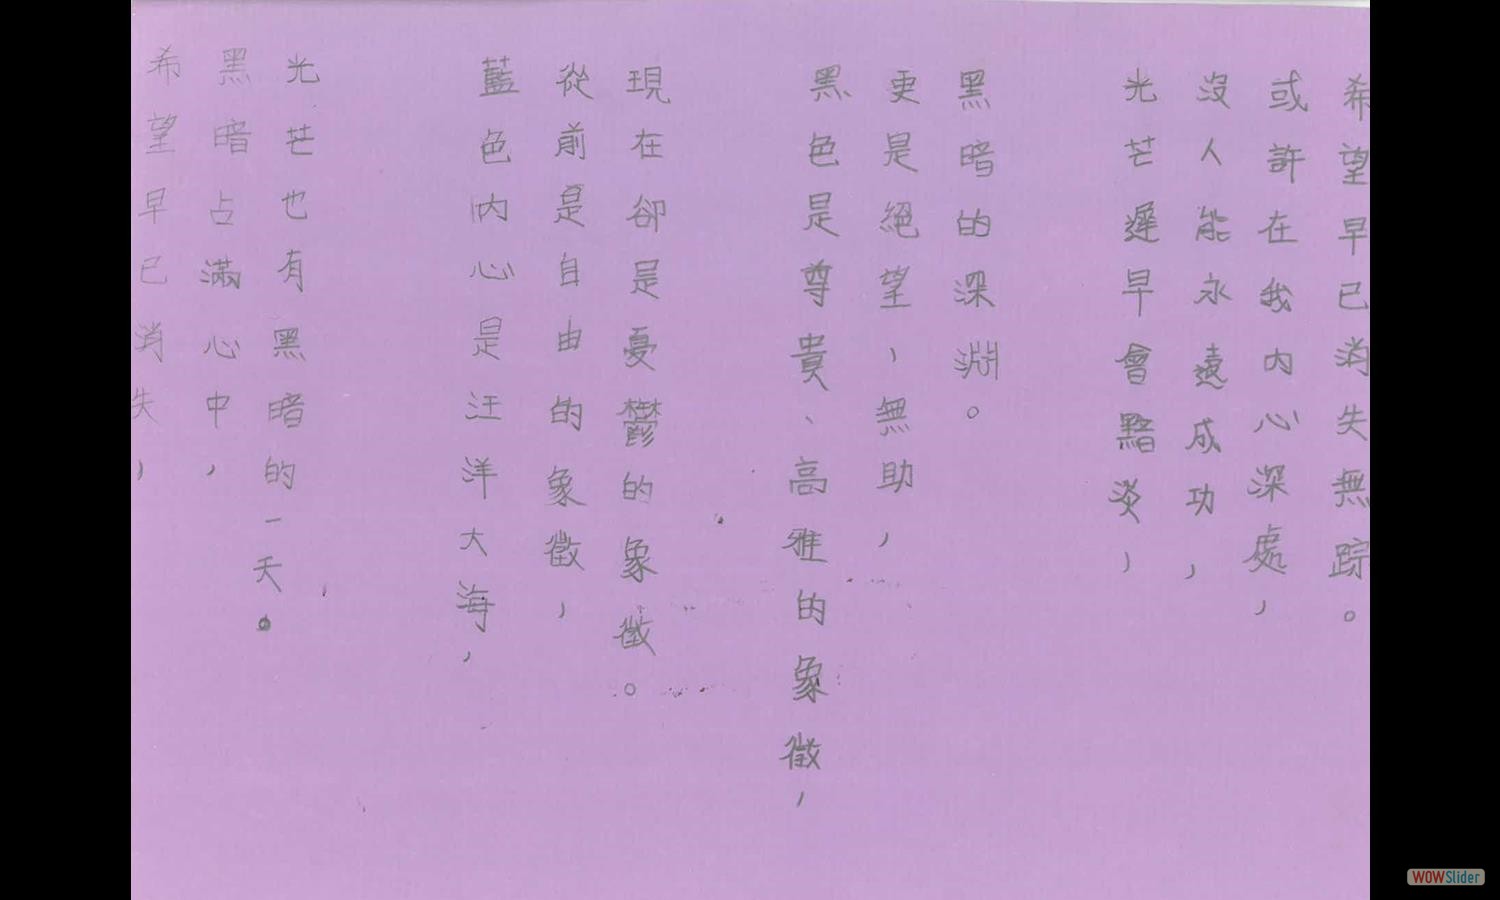 希望早已消失，
黑暗占滿心中，
光芒也有黑暗的一天。
藍色內心是汪洋大海，
從前是自由的象徵，
現在卻是憂鬱的象徵。
黑色是尊貴、高雅的象徵，
更是絕望，無助，
黑暗的深淵。
光芒遲早會黯淡，
沒人能永遠成功，
或許在我內心深處，
希望早已消失無踪。
WOWSlider